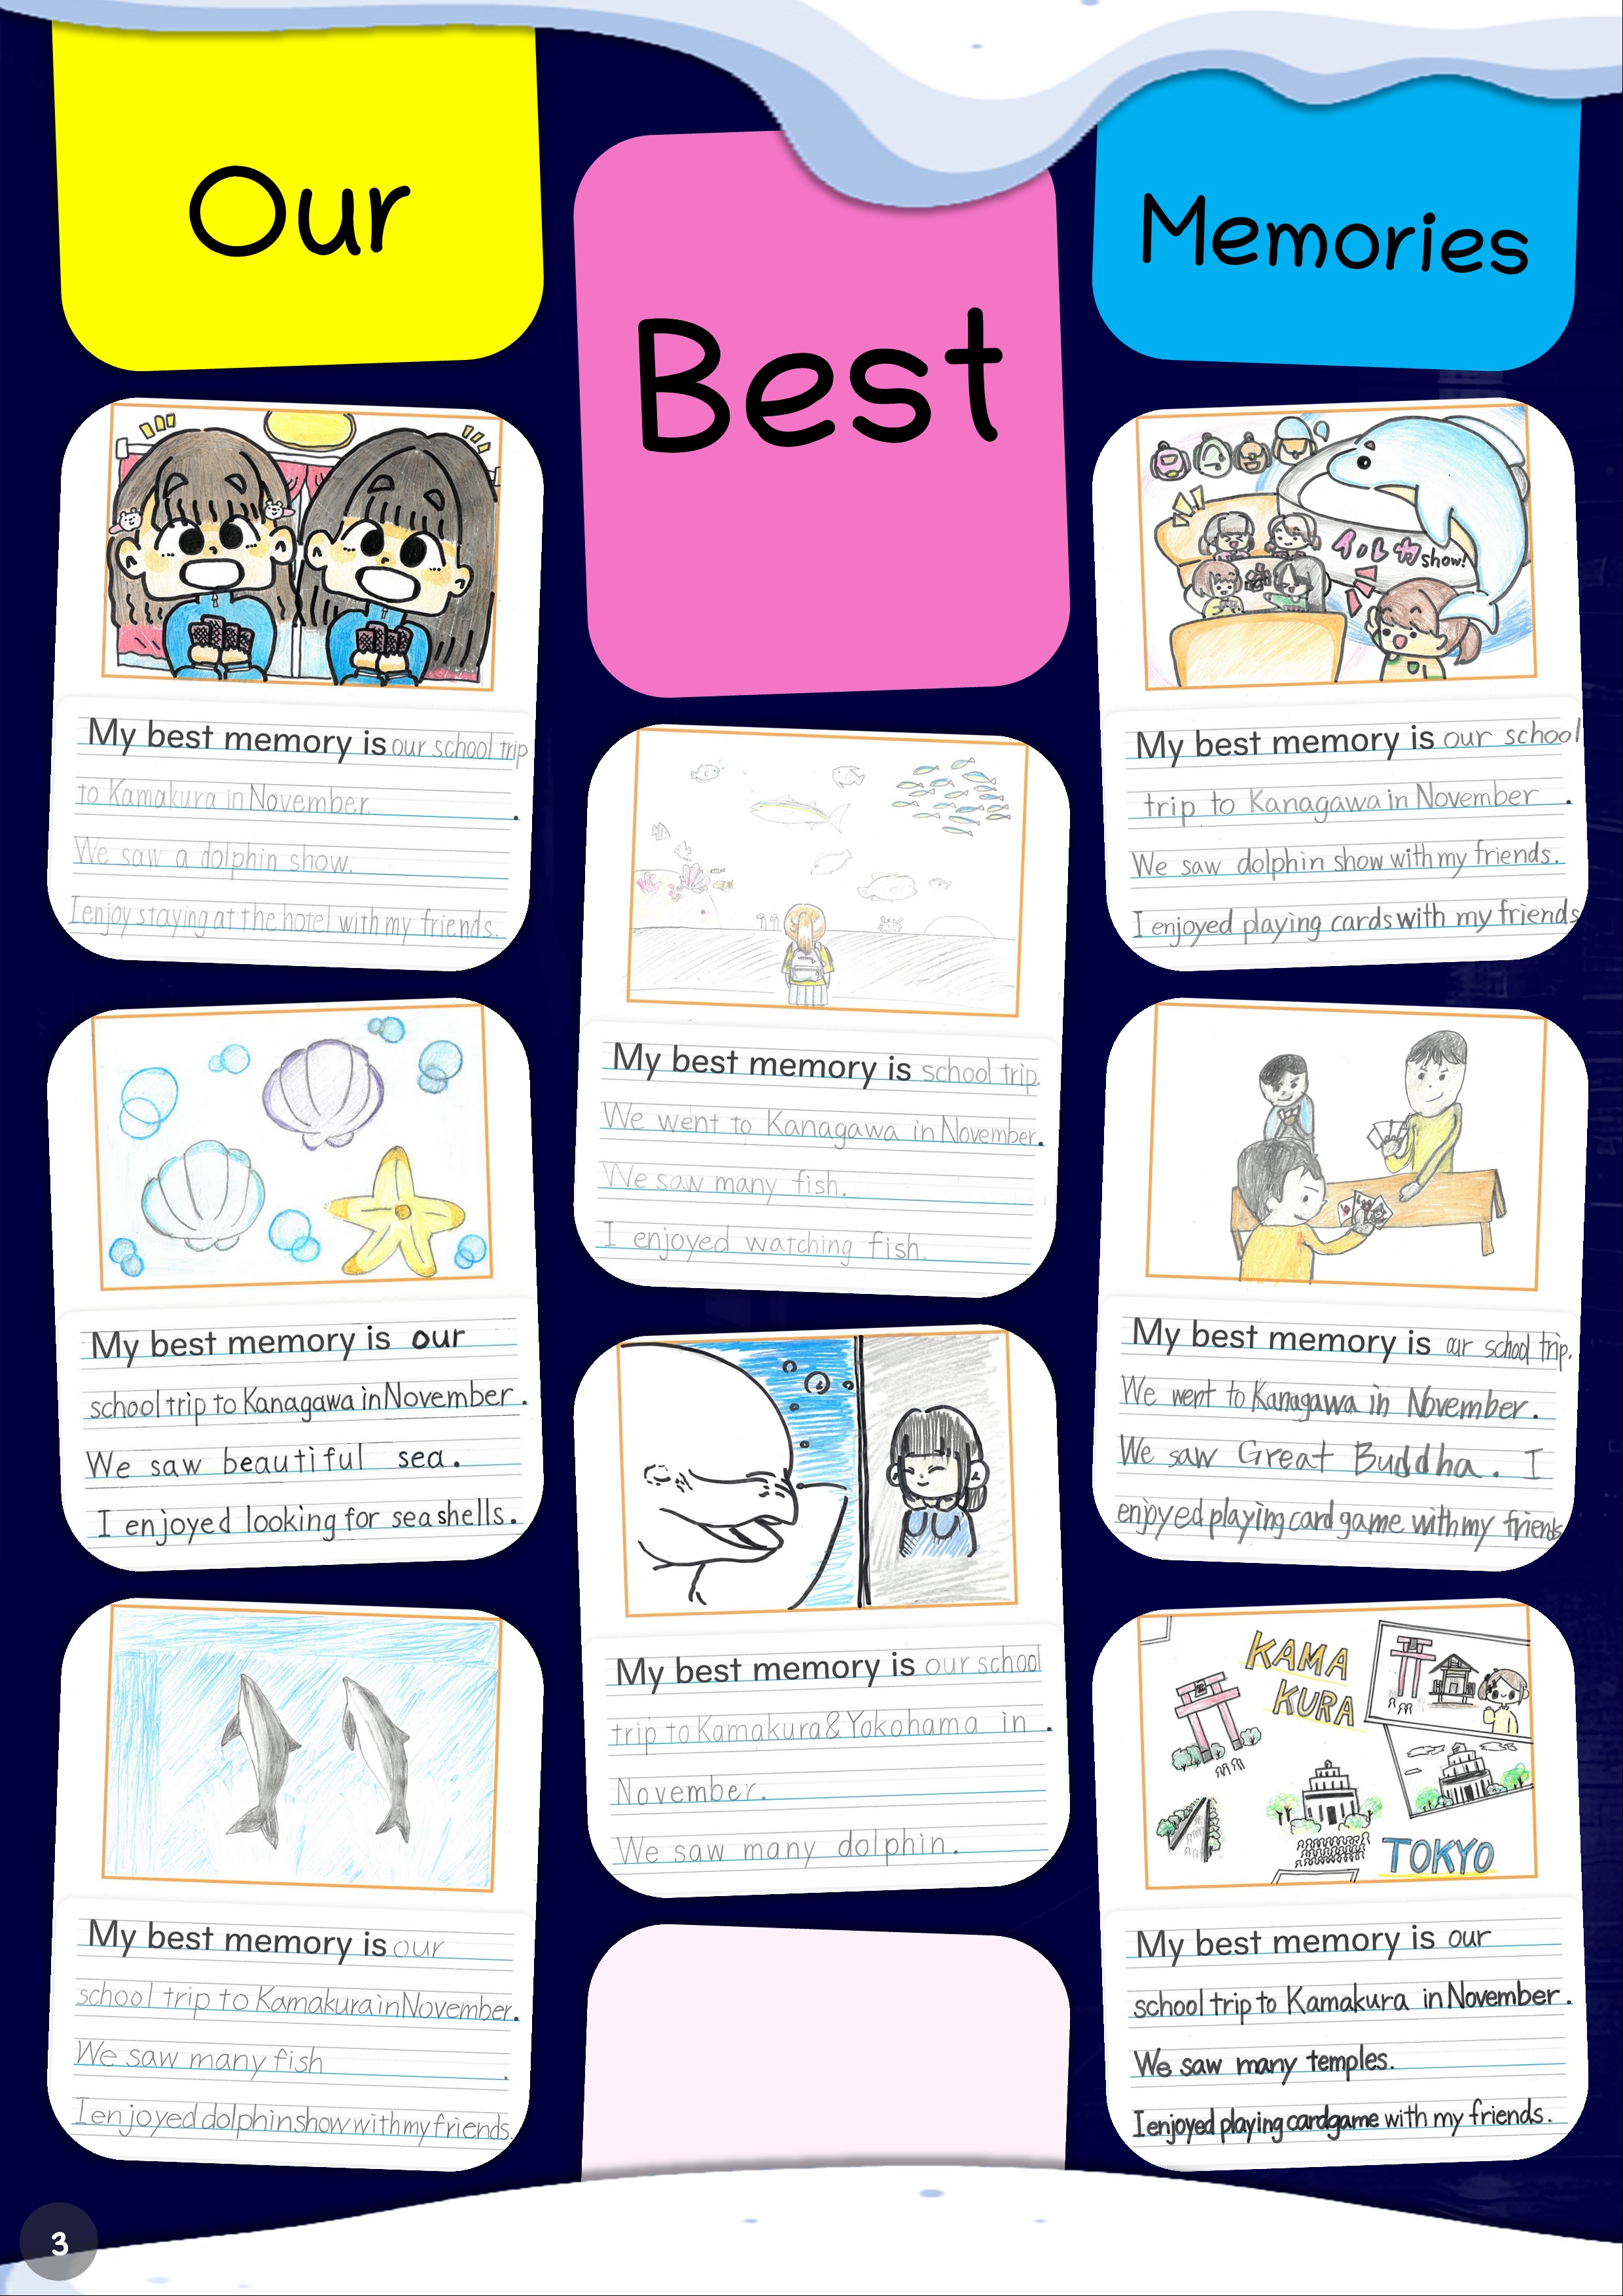 Our
Best
Memories
My best memory is our school trip
to Kamakura in November.
.
We saw a dolphin show.
I enjoy staying at the hotel with my friends.
My best memory is our
school trip to Kanagawa in November.
We saw beautiful sea.
I enjoyed looking for seashells.
My best memory is our
school trip to Kamakura in November.
We saw many fish
.
I enjoyed dolphin show with my friends.
My best memory is school trip.
We went to Kanagawa in November.
We saw many fish.
I enjoyed watching fish.
My best memory is our school
trip to Kamakura & Yokohama in .
November.
We saw many dolphin.
イルカ show!
My best memory is our school
trip to Kanagawa in November .
We saw dolphin show with my friends.
I enjoyed playing cards with my friends
My best memory is our school trip.
We went to Kanagawa in November.
We saw Great Buddha. I
enjoyed playing card game with my friends
KAMA
KURA
TOKYO
My best memory is our
school trip to Kamakura in November.
We saw many temples.
I enjoyed playing cardgame with my friends.
3